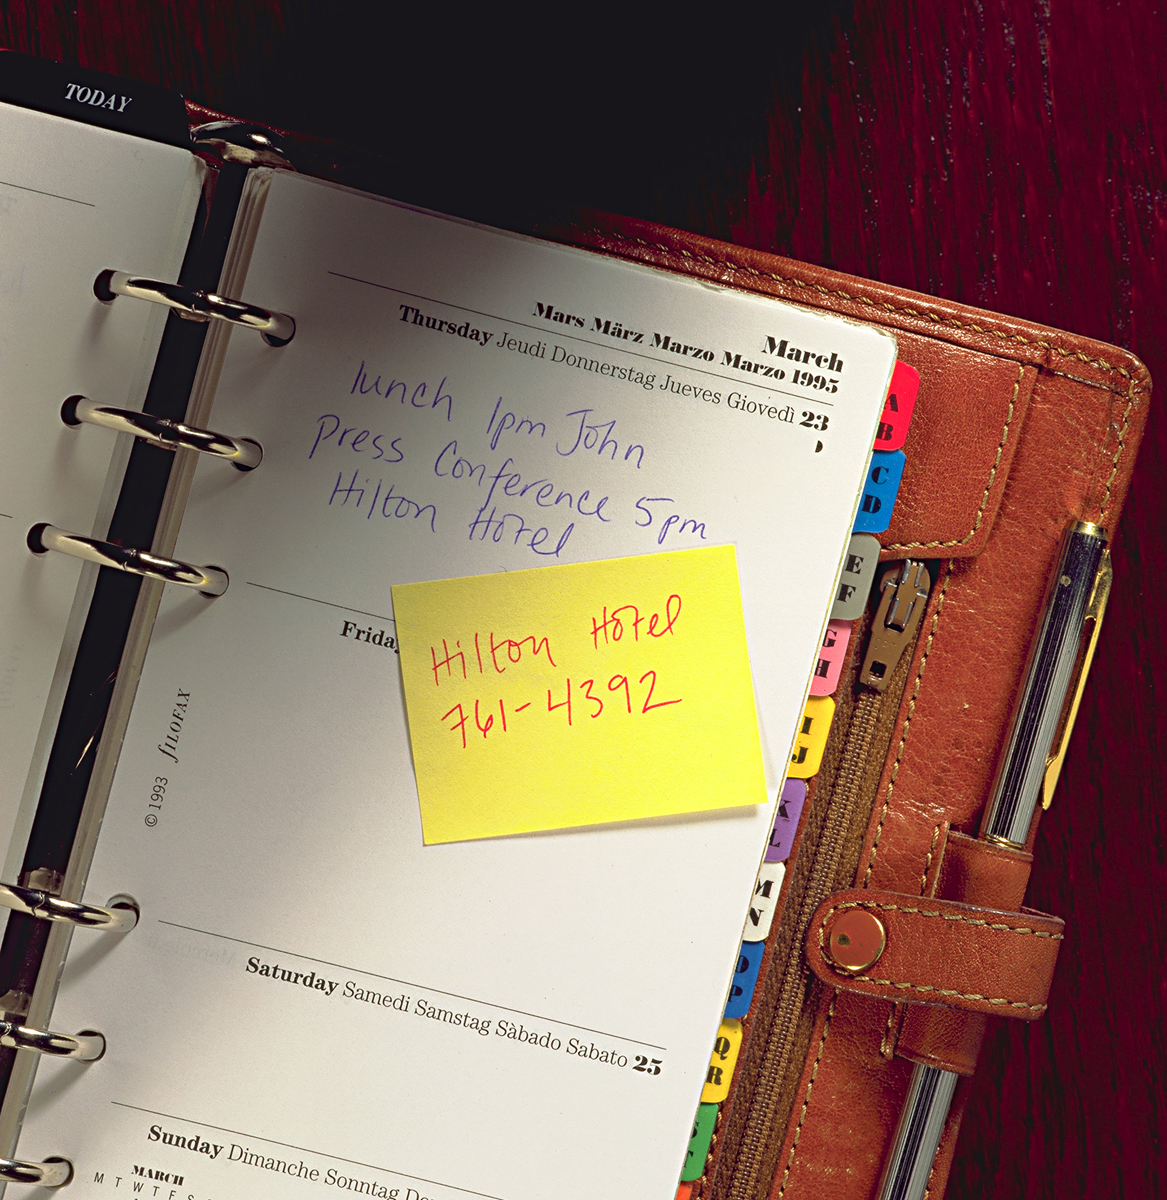 TODAY
March
Mars März Marzo Marzo 1995
Thursday Jeudi Donnerstag Jueves Giovedì 23
lunch 1pm John
Press Conference 5pm
Hilton Hotel
Friday
Hilton Hotel
761-4392
©1993 fILOFAX
Saturday Samedi Samstag Sàbado Sabato 25
Sunday Dimanche Sonntag
MARCH
M T W T F S
A
B
C
D
E
F
G
H
I
J
K
L
M
N
O
P
Q
R
S
T